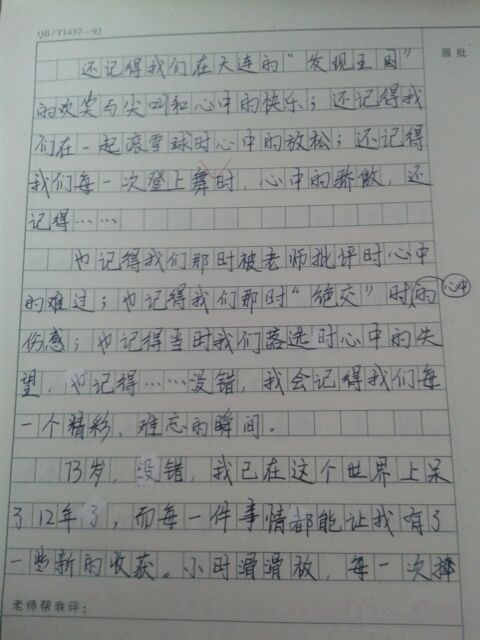 QB/T1437-92
眉批
还记得我们在大连的“发现王国”
的欢笑与尖叫和心中的快乐；还记得我
们在一起滚雪球时心中的放松；还记得
我们每一次登上舞时，心中的骄傲，还
记得……
也记得我们那时被老师批评时心中
的难过；也记得我们那时“绝交”时心中的
伤感；也记得当时我们落选时心中的失
望，也记得……没错，我会记得我们每
一个精彩、难忘的瞬间。
13岁，没错，我已在这个世界上呆
了12年了，而每一件事情都能让我有了
一些新的收获。小时滑滑板，每一次摔
老师帮我评：